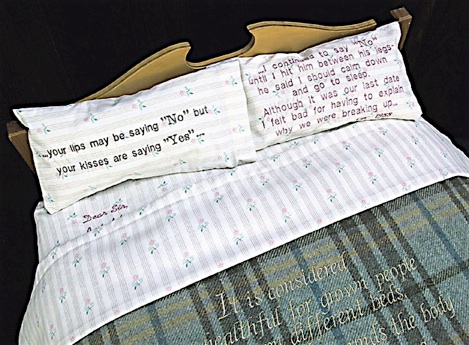 ...your lips may be saying "No" but
your kisses are saying "Yes"...
I continued to say "No"
until I hit him between his legs.
he said I should calm down
and go to sleep.
Although it was our last date
I felt bad for having to explain
why we were breaking up.
Dear Sir,
It is considered
healthful for grown people
different beds
the body